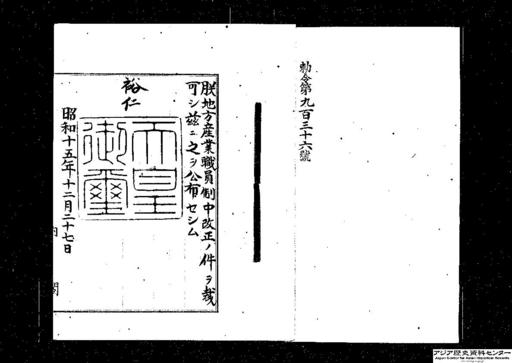 勅令第九百三十六號
朕地方産業職員制中改正ノ件ヲ裁
可シ茲ニ之ヲ公布セシム
裕仁
天皇
御璽
昭和十五年十二月二十七日
内閣
アジア歴史資料センター
Japan Center for Asian Historical Records